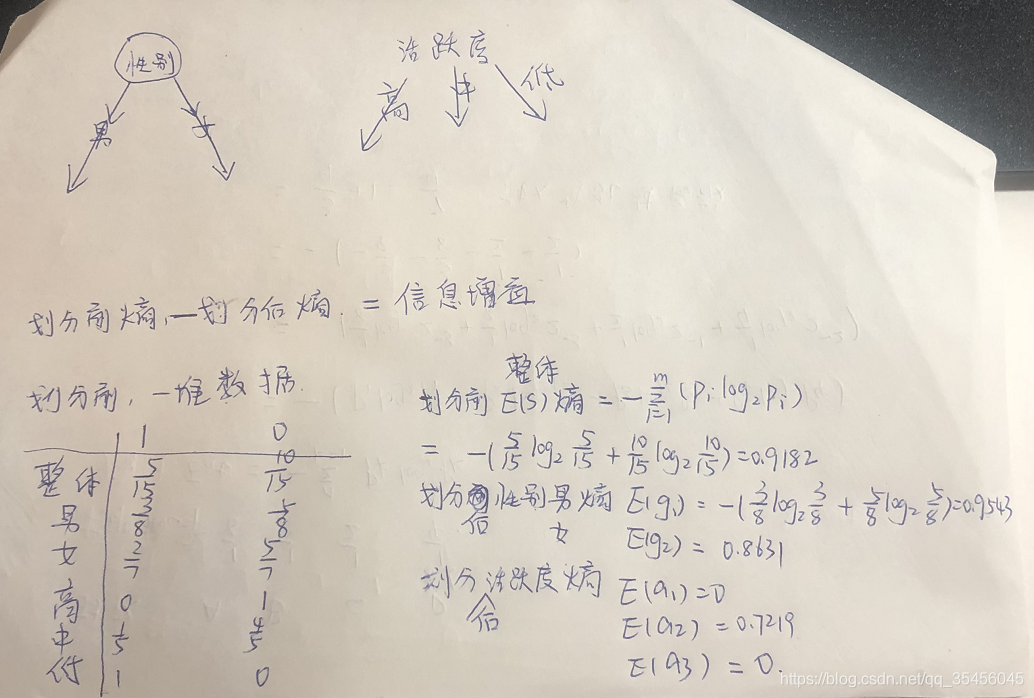 性别
男 女
活跃度
高 中 低
划分前熵 — 划分后熵 = 信息增益
划分前,一堆数据.
1 0
整体 5/15 10/15
男 3/8 5/8
女 2/7 5/7
高 0 1
中 1/5 4/5
低 1 0
整体
划分前 E(S) 熵 = -∑_{i=1}^{m} (p_i log₂ p_i)
= -(5/15 log₂ 5/15 + 10/15 log₂ 10/15) = 0.9182
划分后性别男熵 E(g₁) = -(3/8 log₂ 3/8 + 5/8 log₂ 5/8) = 0.9543
女 E(g₂) = 0.8631
划分后活跃度熵 E(a₁) = 0
E(a₂) = 0.7219
E(a₃) = 0.
https://blog.csdn.net/qq_35456045